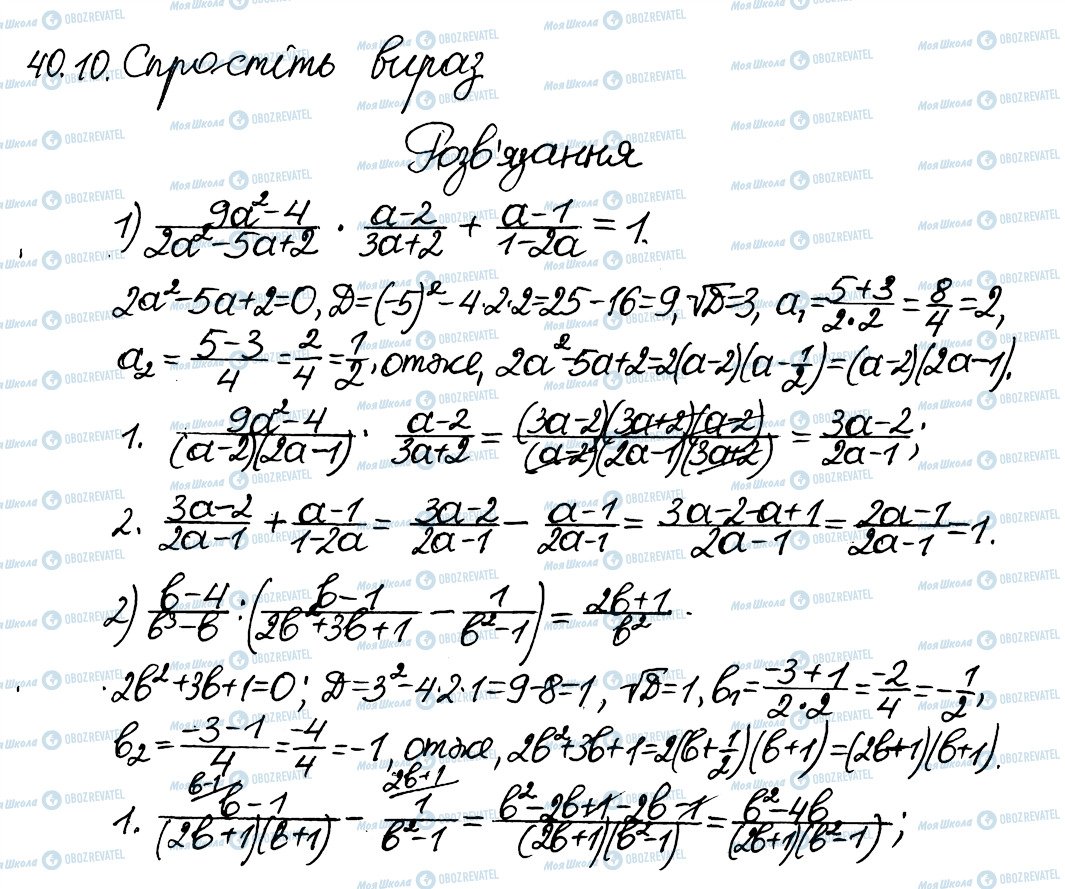 40.10. Спростіть вираз
Розв'язання
1) (9a²-4)/(2a²-5a+2) · (a-2)/(3a+2) + (a-1)/(1-2a) = 1.
2a²-5a+2=0, D=(-5)²-4·2·2=25-16=9, √D=3, a₁=(5+3)/(2·2)=8/4=2,
a₂=(5-3)/4=2/4=1/2, отже, 2a²-5a+2=2(a-2)(a-1/2)=(a-2)(2a-1).
1. (9a²-4)/((a-2)(2a-1)) · (a-2)/(3a+2) = ((3a-2)(3a+2)(a-2))/((a-2)(2a-1)(3a+2)) = (3a-2)/(2a-1);
2. (3a-2)/(2a-1) + (a-1)/(1-2a) = (3a-2)/(2a-1) - (a-1)/(2a-1) = (3a-2-a+1)/(2a-1) = (2a-1)/(2a-1) = 1.
2) (b-4)/(b³-b) : ((b-1)/(2b²+3b+1) - 1/(b²-1)) = (2b+1)/b².
2b²+3b+1=0; D=3²-4·2·1=9-8=1, √D=1, b₁=(-3+1)/(2·2)=-2/4=-1/2,
b₂=(-3-1)/4=-4/4=-1, отже, 2b²+3b+1=2(b+1/2)(b+1)=(2b+1)(b+1).
b-1 2b+1
1. (b-1)/((2b+1)(b+1)) - 1/(b²-1) = (b²-2b+1-2b-1)/((2b+1)(b²-1)) = (b²-4b)/((2b+1)(b²-1));